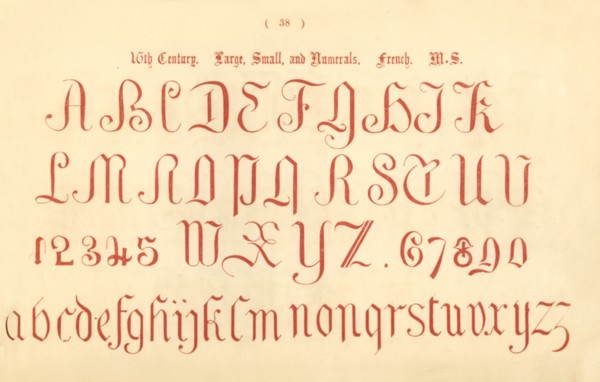 ( 38 )
16th Century. Large, Small, and Numerals. French. M.S.
A B C D E F G H I K
L M N O P Q R S T U V
1 2 3 4 5 W X Y Z . 6 7 8 9 0
a b c d e f g h i j k l m n o n q r s t u v x y z z